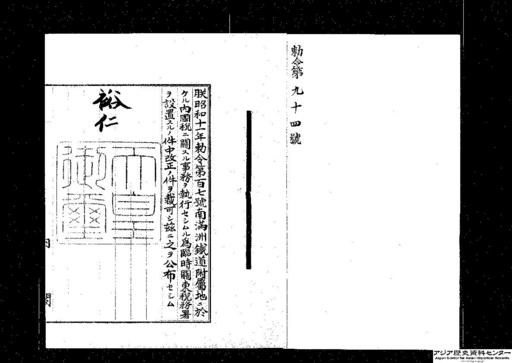 勅令第九十四號
朕昭和十一年勅令第百七號南滿洲鐵道附屬地ニ於
ケル內國稅ニ關スル事務ヲ執行セシムル爲臨時關東稅務署
ヲ設置スルノ件中改正ノ件ヲ裁可シ茲ニ之ヲ公布セシム
裕仁
天皇
御璽
内
閣
アジア歴史資料センター
Japan Center for Asian Historical Records